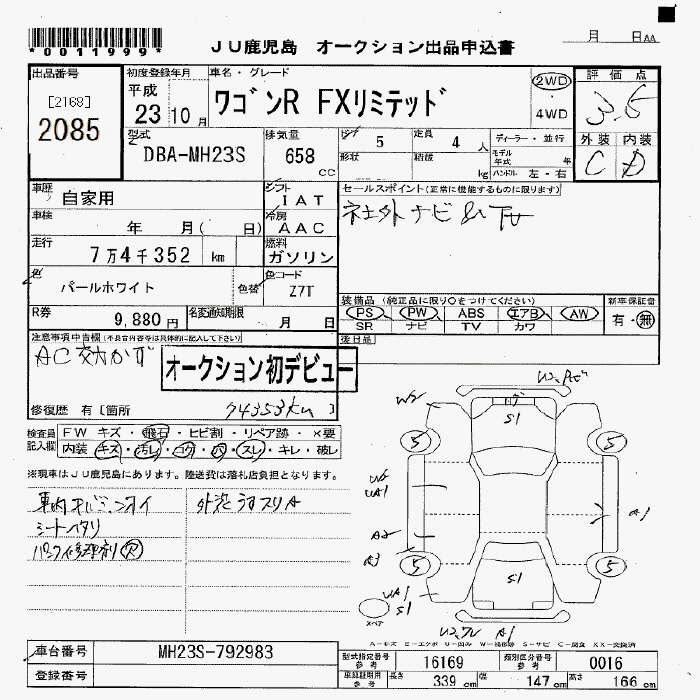 *0011999*
JU鹿児島 オークション出品申込書
月 日AA
出品番号
[2168]
2085
初度登録年月
平成
23 10 月
車名・グレード
ワゴンR FXリミテッド
2WD
4WD
評価点
3.5
外装 内装
C D
型式
DBA-MH23S
排気量
658
CC
ドア 5
形状
定員 4 人
積載 kg
ディーラー・並行
モデル年式 年
ハンドル 左・右
車歴
自家用
シフト
IAT
セールスポイント(正常に機能するものに限ります)
社外ナビ&TV
車検
年 月( 日)
冷房
AAC
走行
7万4千352 km
燃料
ガソリン
色
パールホワイト
色替
色コード
Z7T
装備品(純正品に限り○をつけてください)
PS PW ABS エアB AW
SR ナビ TV カワ
新車保証書
有・無
R券
9,880 円
名変通知期限
月 日
後日品
注意事項申告欄(不具合内容等は具体的に記入して下さい)
AC効かず
オークション初デビュー
修復歴 有〔箇所
74353km〕
検査員記入欄
FW キズ・飛石・ヒビ割・リペア跡・×要
内装 キズ・汚レ・コゲ・穴・スレ・キレ・破レ
※現車はJU鹿児島にあります。陸送費は落札店負担となります。
シートヘタリ
パンク修理剤 欠
W2
S1
5
5
A1
A2
A3
5
5
S1
S1
A1
スペア
A-キズ E-エクボ U-凹み W-補修跡 S-サビ C-腐食 XX-交換済
車台番号
MH23S-792983
登録番号
型式指定番号
参考
16169
類別区分番号
参考
0016
車検証明用
参考
長さ 339 cm 幅 147 cm 高さ 166 cm